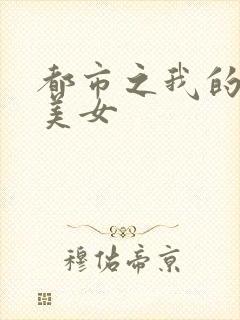 都市之我的
美女
穆佑帝京